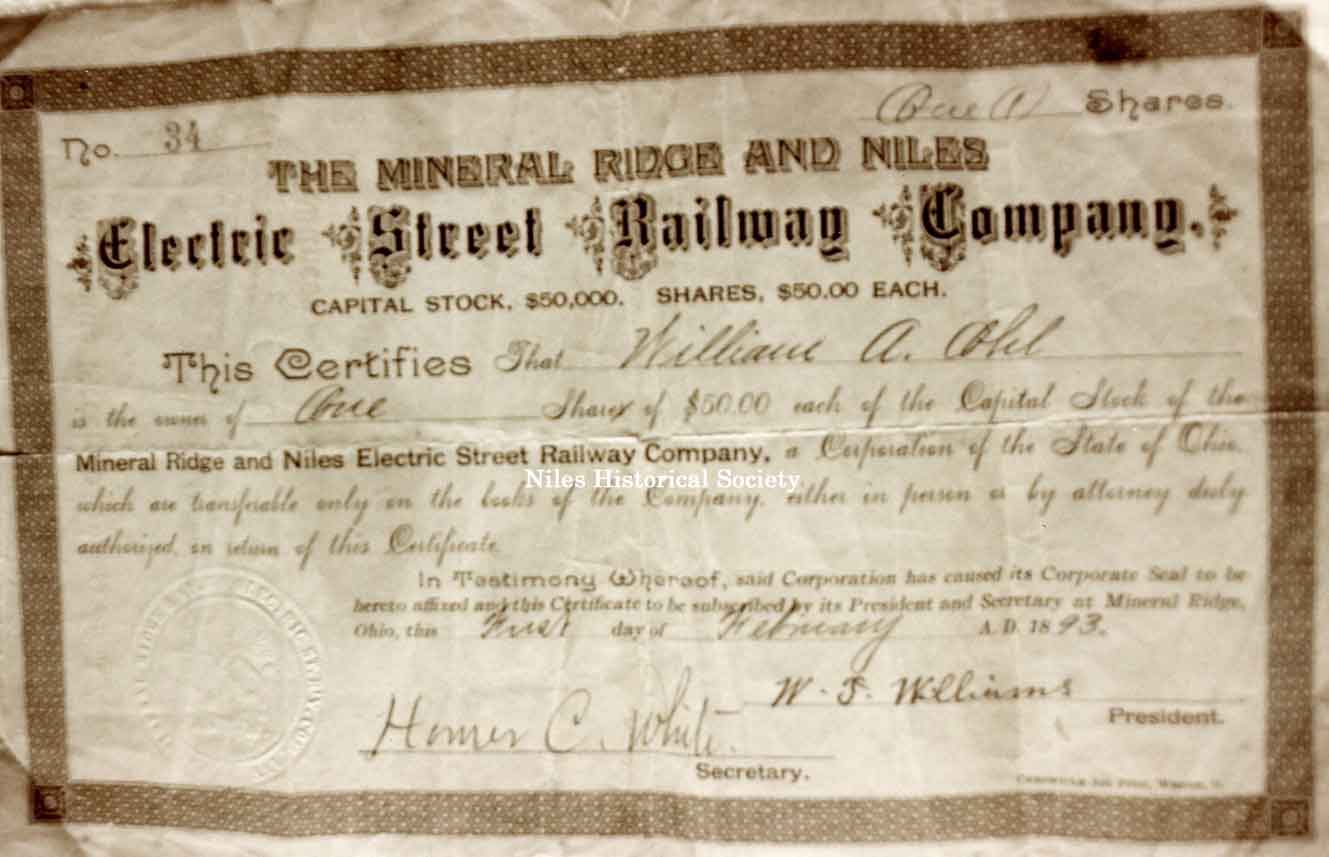 No. 34
One (1) Shares.
THE MINERAL RIDGE AND NILES
Electric Street Railway Company.
CAPITAL STOCK, $50,000. SHARES, $50.00 EACH.
This Certifies That William A. Ohl
is the owner of One Shares of $50.00 each of the Capital Stock of the
Mineral Ridge and Niles Electric Street Railway Company, a Corporation of the State of Ohio,
Niles Historical Society
which are transferable only on the books of the Company, either in person or by attorney duly
authorized, on return of this Certificate.
In Testimony Whereof, said Corporation has caused its Corporate Seal to be
hereto affixed and this Certificate to be subscribed by its President and Secretary at Mineral Ridge,
Ohio, this First day of February A. D. 1893.
W. F. Williams
President.
Homer C. White.
Secretary.